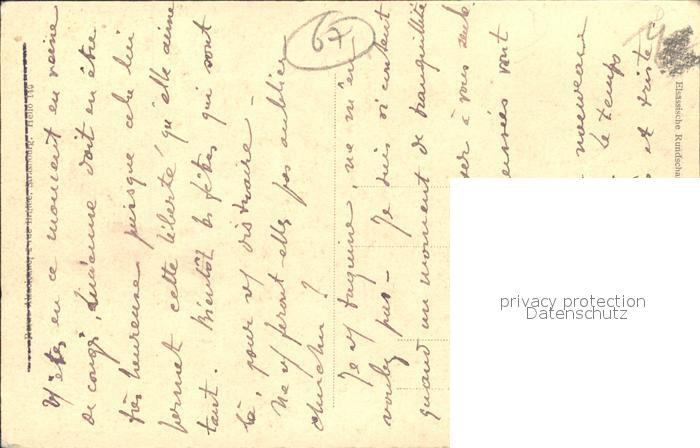 Vs êtes en ce moment en veine
de congé, Lucienne doit en être
très heureuse puisque cela lui
permet cette liberté qu'elle aime
tant. Bientôt les fêtes qui sont
là, pour vs distraire -
Ne vs feront-elles pas oublier
Je vs taquine, ne m'en
voulez pas - Je suis si content
quand un moment de tranquillité
à vous seule
vont
nouveau
le temps
et triste
67
Elsässische Rundschau
Strasbourg. Hélio 149
privacy protection
Datenschutz